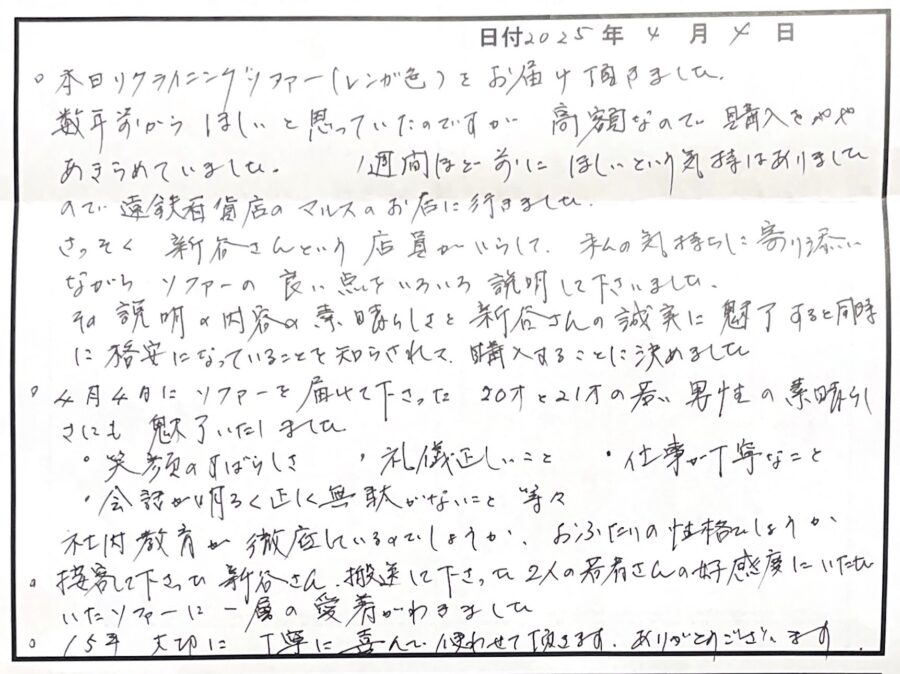 日付2025年 4 月 4 日
○ 本日リクライニングソファー(レンガ色)をお届け頂きました。
数年前からほしいと思っていたのですが 高額なので購入をやや
あきらめていました。 1週間ほど前にほしいという気持はありました
ので遠鉄百貨店のマルスのお店に行きました。
さっそく 新谷さんという店員がいらして、私の気持ちに寄り添い
ながら ソファーの良い点をいろいろ説明して下さいました。
その説明の内容の素晴らしさと新谷さんの誠実に魅了すると同時
に格安になっていることを知らされて、購入することに決めました
○ 4月4日にソファーを届けて下さった 20才と21才の若い男性の素晴らし
さにも 魅了いたしました
・笑顔のすばらしさ ・礼儀正しいこと ・仕事が丁寧なこと
・会話が明るく正しく無駄がないこと 等々
社内教育が徹底しているのでしょうか、おふたりの性格でしょうか
○ 接客して下さった新谷さん、搬送して下さった2人の若者さんの好感度にいただ
いたソファーに一層の愛着がわきました
○ 15年 大切に丁寧に喜んで使わせて頂きます。ありがとうございます。